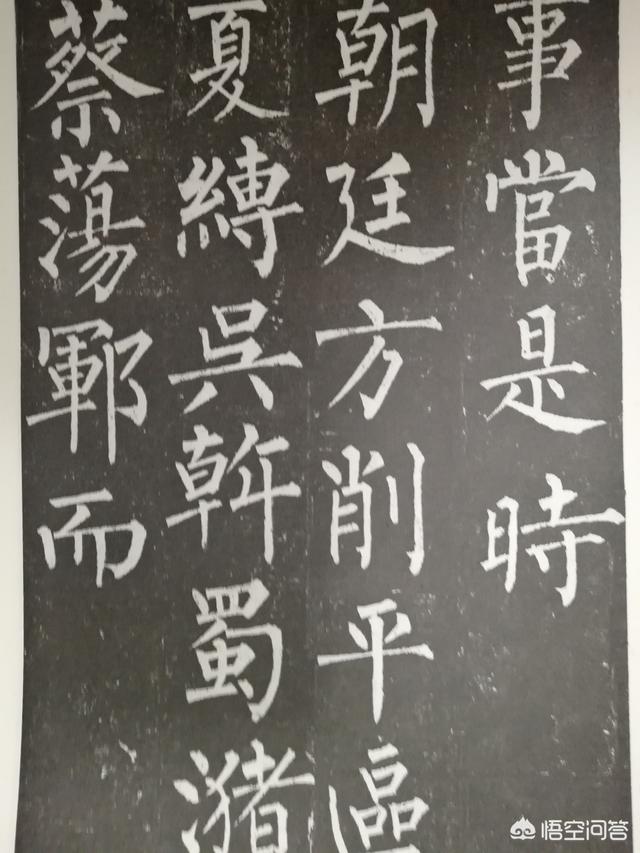 事當是時
朝廷方削平區
夏縛吳斡蜀瀦
蔡蕩鄆而
悟空问答